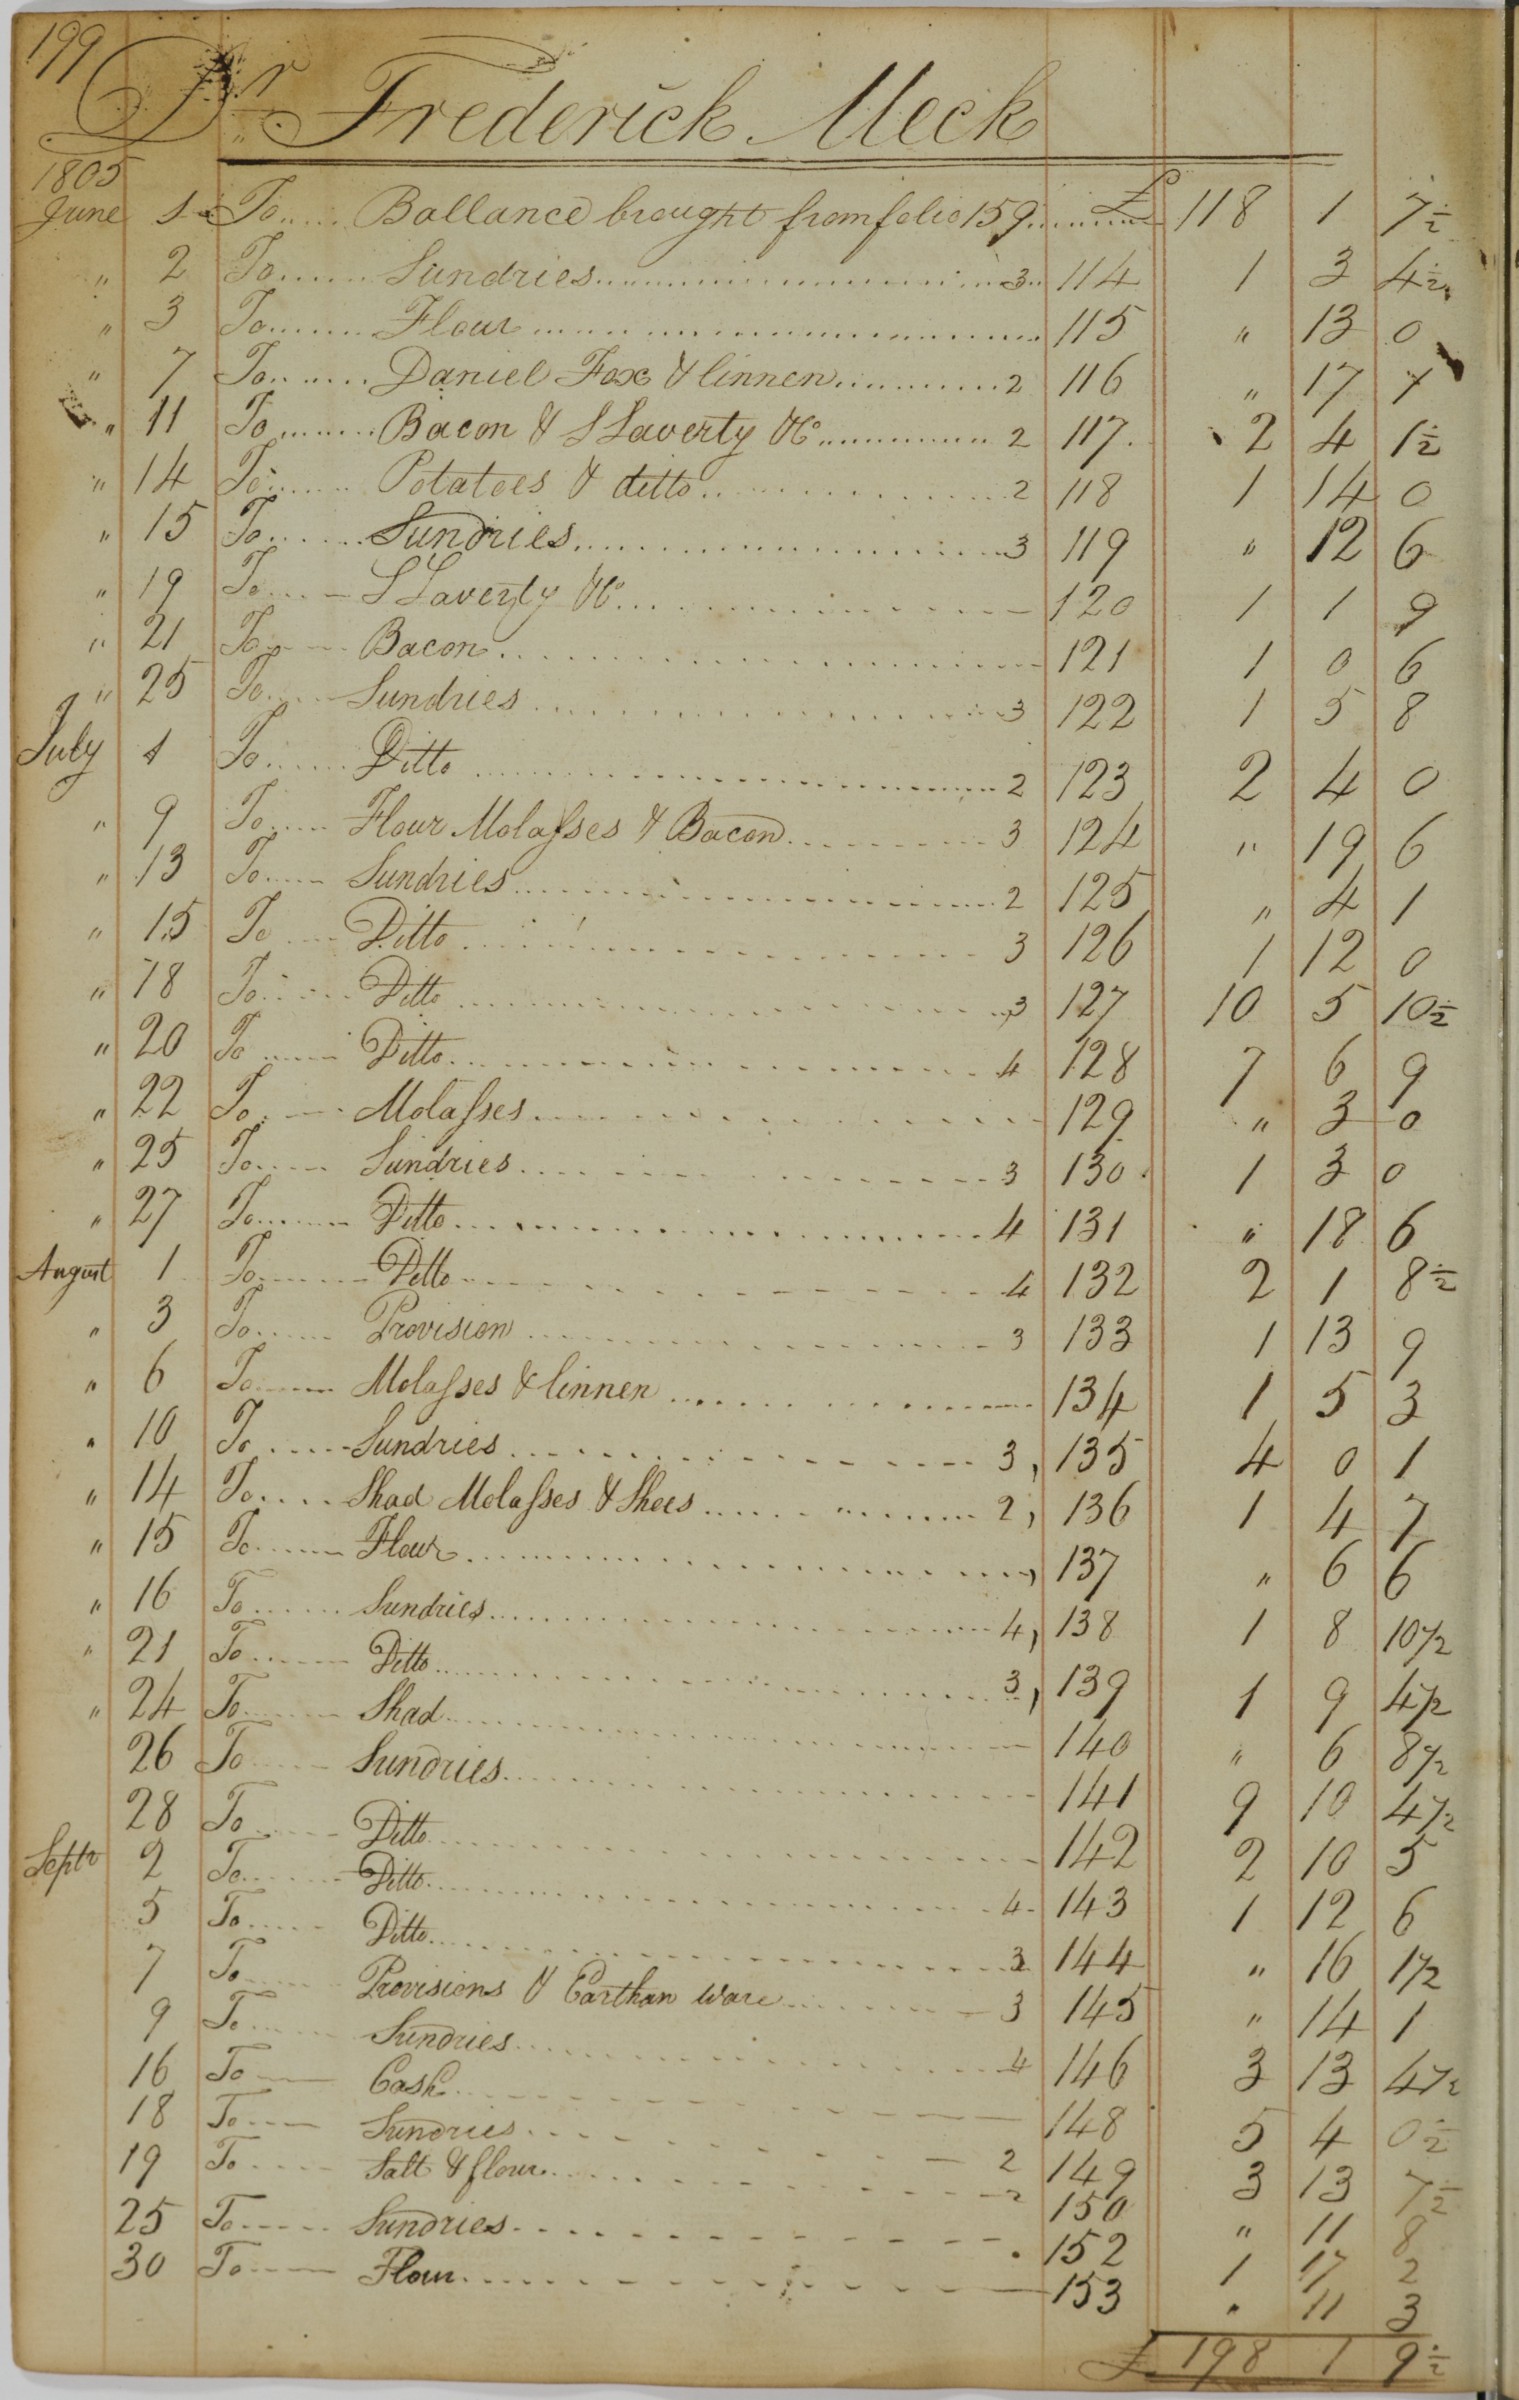 199
Dr Frederick Meck
1805
June 1 To Ballance brought from folio 159 £ 118 1 7½
" 2 To Sundries 3 114 1 3 4½
" 3 To Flour 115 " 13 0
" 7 To Daniel Fox & linnen 2 116 " 17 7
" 11 To Bacon & S Laverty &Co 2 117 2 4 1½
" 14 To Potatoes & ditto 2 118 1 14 0
" 15 To Sundries 3 119 " 12 6
" 19 To S Laverty &Co 120 1 1 9
" 21 To Bacon 121 1 0 6
" 25 To Sundries 3 122 1 5 8
July 1 To Ditto 2 123 2 4 0
" 9 To Flour Molasses & Bacon 3 124 " 19 6
" 13 To Sundries 2 125 " 4 1
" 15 To Ditto 3 126 1 12 0
" 18 To Ditto 3 127 10 5 10½
" 20 To Ditto 4 128 7 6 9
" 22 To Molasses 129 " 3 0
" 25 To Sundries 3 130 1 3 0
" 27 To Ditto 4 131 " 18 6
August 1 To Ditto 4 132 2 1 8½
" 3 To Provision 3 133 1 13 9
" 6 To Molasses & linnen 134 1 5 3
" 10 To Sundries 3, 135 4 0 1
" 14 To Shad Molasses & Shoes 2, 136 1 4 7
" 15 To Flour , 137 " 6 6
" 16 To Sundries 4, 138 1 8 10½
" 21 To Ditto 3, 139 1 9 4½
" 24 To Shad 140 " 6 8½
26 To Sundries 141 9 10 4½
28 To Ditto 142 2 10 5
Septr 2 To Ditto 4 143 1 12 6
5 To Ditto 3 144 " 16 1½
7 To Provisions & Earthan ware 3 145 " 14 1
9 To Sundries 4 146 3 13 4½
16 To Cash 148 5 4 0½
18 To Sundries 2 149 3 13 7½
19 To Salt & flour 2 150 " 11 8
25 To Sundries 152 1 17 2
30 To Flour 153 " 11 3
£ 198 1 9½